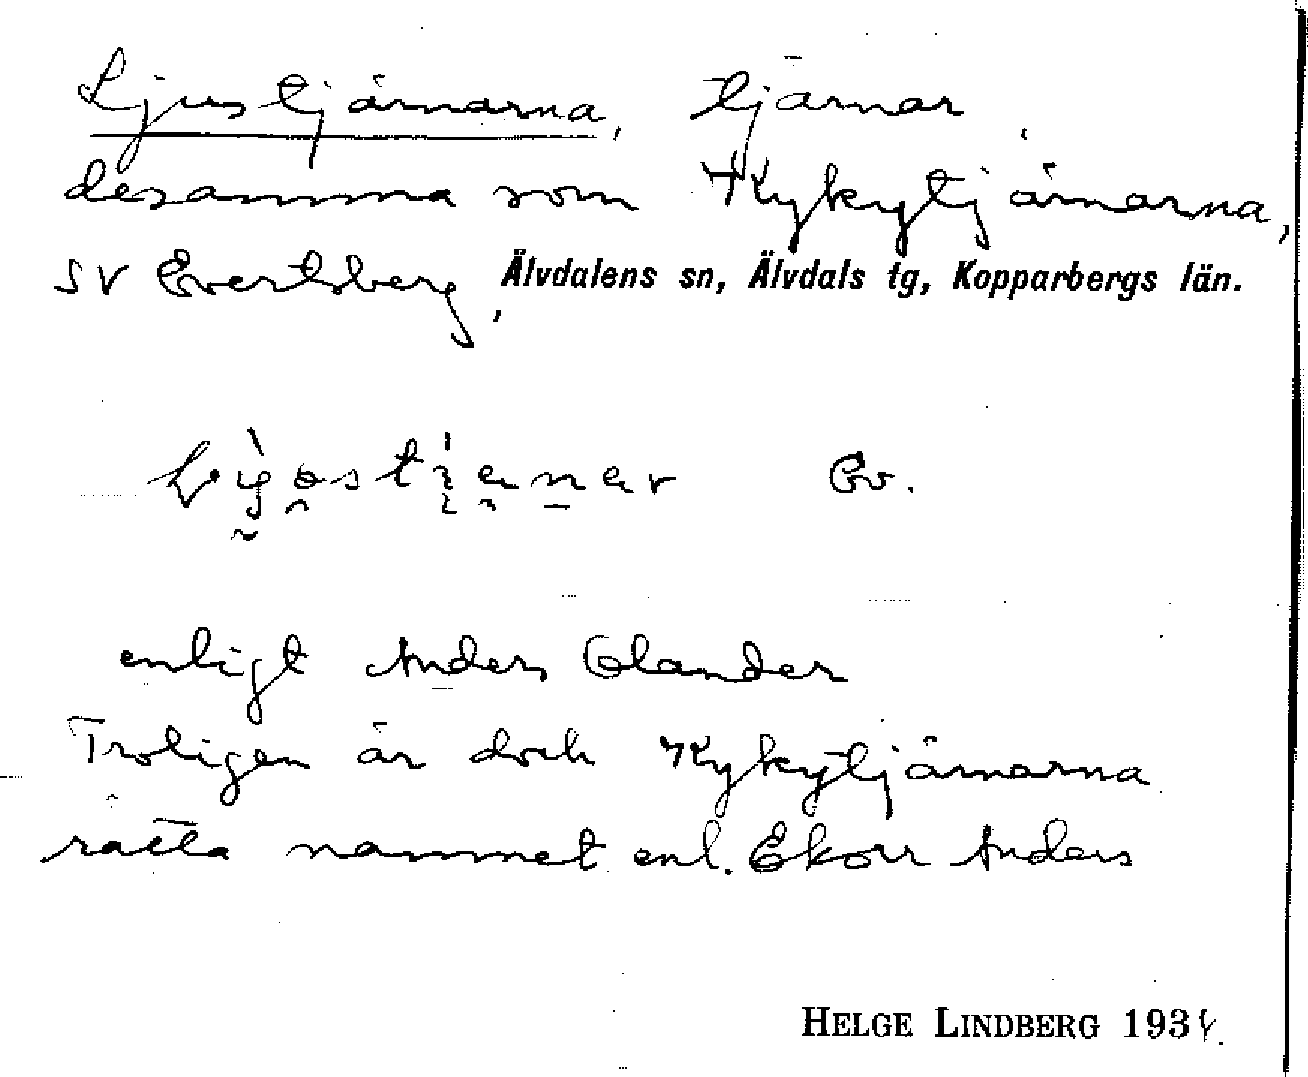 Ljustjärnarna, tjärnar
desamma som Kykytjärnarna,
SV Evertsberg, Älvdalens sn, Älvdals tg, Kopparbergs län.
Ev.
enligt Anders Olander
Troligen är dock Kykytjärnarna
rätta namnet enl. Ekorr Anders
HELGE LINDBERG 1934.